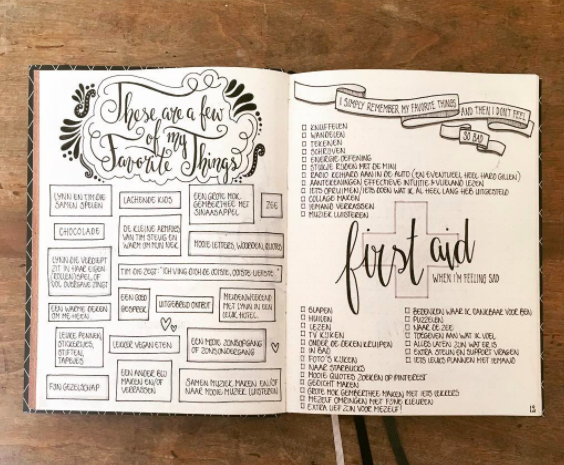 These are a few
of my
Favorite Things
LYNN EN TIM DIE
SAMEN SPELEN
LACHENDE KIDS
EEN GROTE MOK
GEMBERTHEE MET
SINAASAPPEL
ZEE
CHOCOLADE
DE KLEINE ARMPJES
VAN TIM STEVIG EN
WARM OM MIJN NEK
MOOIE LETTERS, WOORDEN, QUOTES
LYNN DIE VERDIEPT
ZIT IN HAAR EIGEN
(ROLLEN)SPEL, OF
VOL OVERGAVE ZINGT
TIM DIE ZEGT: "ICH VING DICH DE
EEN WARME DEKEN
OM ME HEEN
EEN GOED
GESPREK
UITGEBREID ONTBIJT
MEIDENWEEKEND
MET LYNN IN EEN
LEUK HOTEL
LEUKE PENNEN,
STICKERTJES,
STIFTEN,
TAPEJES
LEKKER VEGAN ETEN
EEN MOOIE ZONSOPGANG
OF ZONSONDERGANG
FIJN GEZELSCHAP
EEN ANDER BLIJ
MAKEN EN/OF
VERRASSEN
SAMEN MUZIEK MAKEN EN/OF
NAAR MOOIE MUZIEK LUISTEREN
I SIMPLY REMEMBER MY FAVORITE THINGS
AND THEN I DON'T FEEL
SO BAD
KNUFFELEN
WANDELEN
TEKENEN
SCHRIJVEN
ENERGIE OEFENING
STUKJE RIJDEN MET DE MINI
RADIO KEIHARD AAN IN DE AUTO (EN EVENTUEEL HEEL HARD GILLEN)
AANTEKENINGEN EFFECTIEVE INTUITIE VIJVERAND LEZEN
IETS OPRUIMEN/IETS DOEN WAT IK AL HEEL LANG HEB UITGESTELD
COLLAGE MAKEN
IEMAND VERRASSEN
MUZIEK LUISTEREN
first aid
WHEN I'M FEELING SAD
SLAPEN
HUILEN
LEZEN
TV KIJKEN
ONDER DE DEKEN KRUIPEN
IN BAD
FOTO'S KIJKEN
NAAR STARBUCKS
MOOIE QUOTES ZOEKEN OP PINTEREST
GEDICHT MAKEN
GROTE MOK GEMBERTHEE MAKEN MET IETS LEKKERS
MEZELF OMRINGEN MET FIJNE KLEUREN
EXTRA LIEF ZIJN VOOR MEZELF!
BEDENKEN WAAR IK DANKBAAR VOOR BEN
PUZZELEN
NAAR DE ZEE
TOEGEVEN AAN WAT IK VOEL
ALLES LATEN ZIJN WAT ER IS
EXTRA STEUN EN SUPPORT VRAGEN
IETS LEUKS PLANNEN MET IEMAND